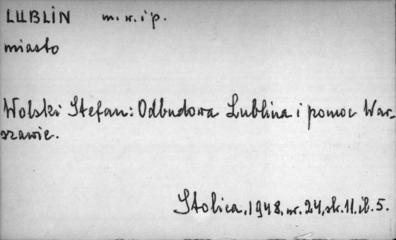 LUBLIN m.w.i p.
miasto
Wolski Stefan: Odbudowa Lublina i pomoc War-
szawie.
Stolica, 1948, nr. 24, str. 11. il. 5.